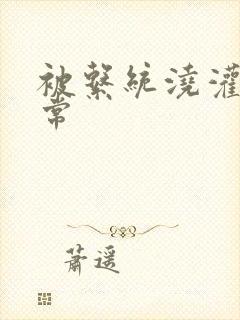 被繫統澆灌
常
蕭遥